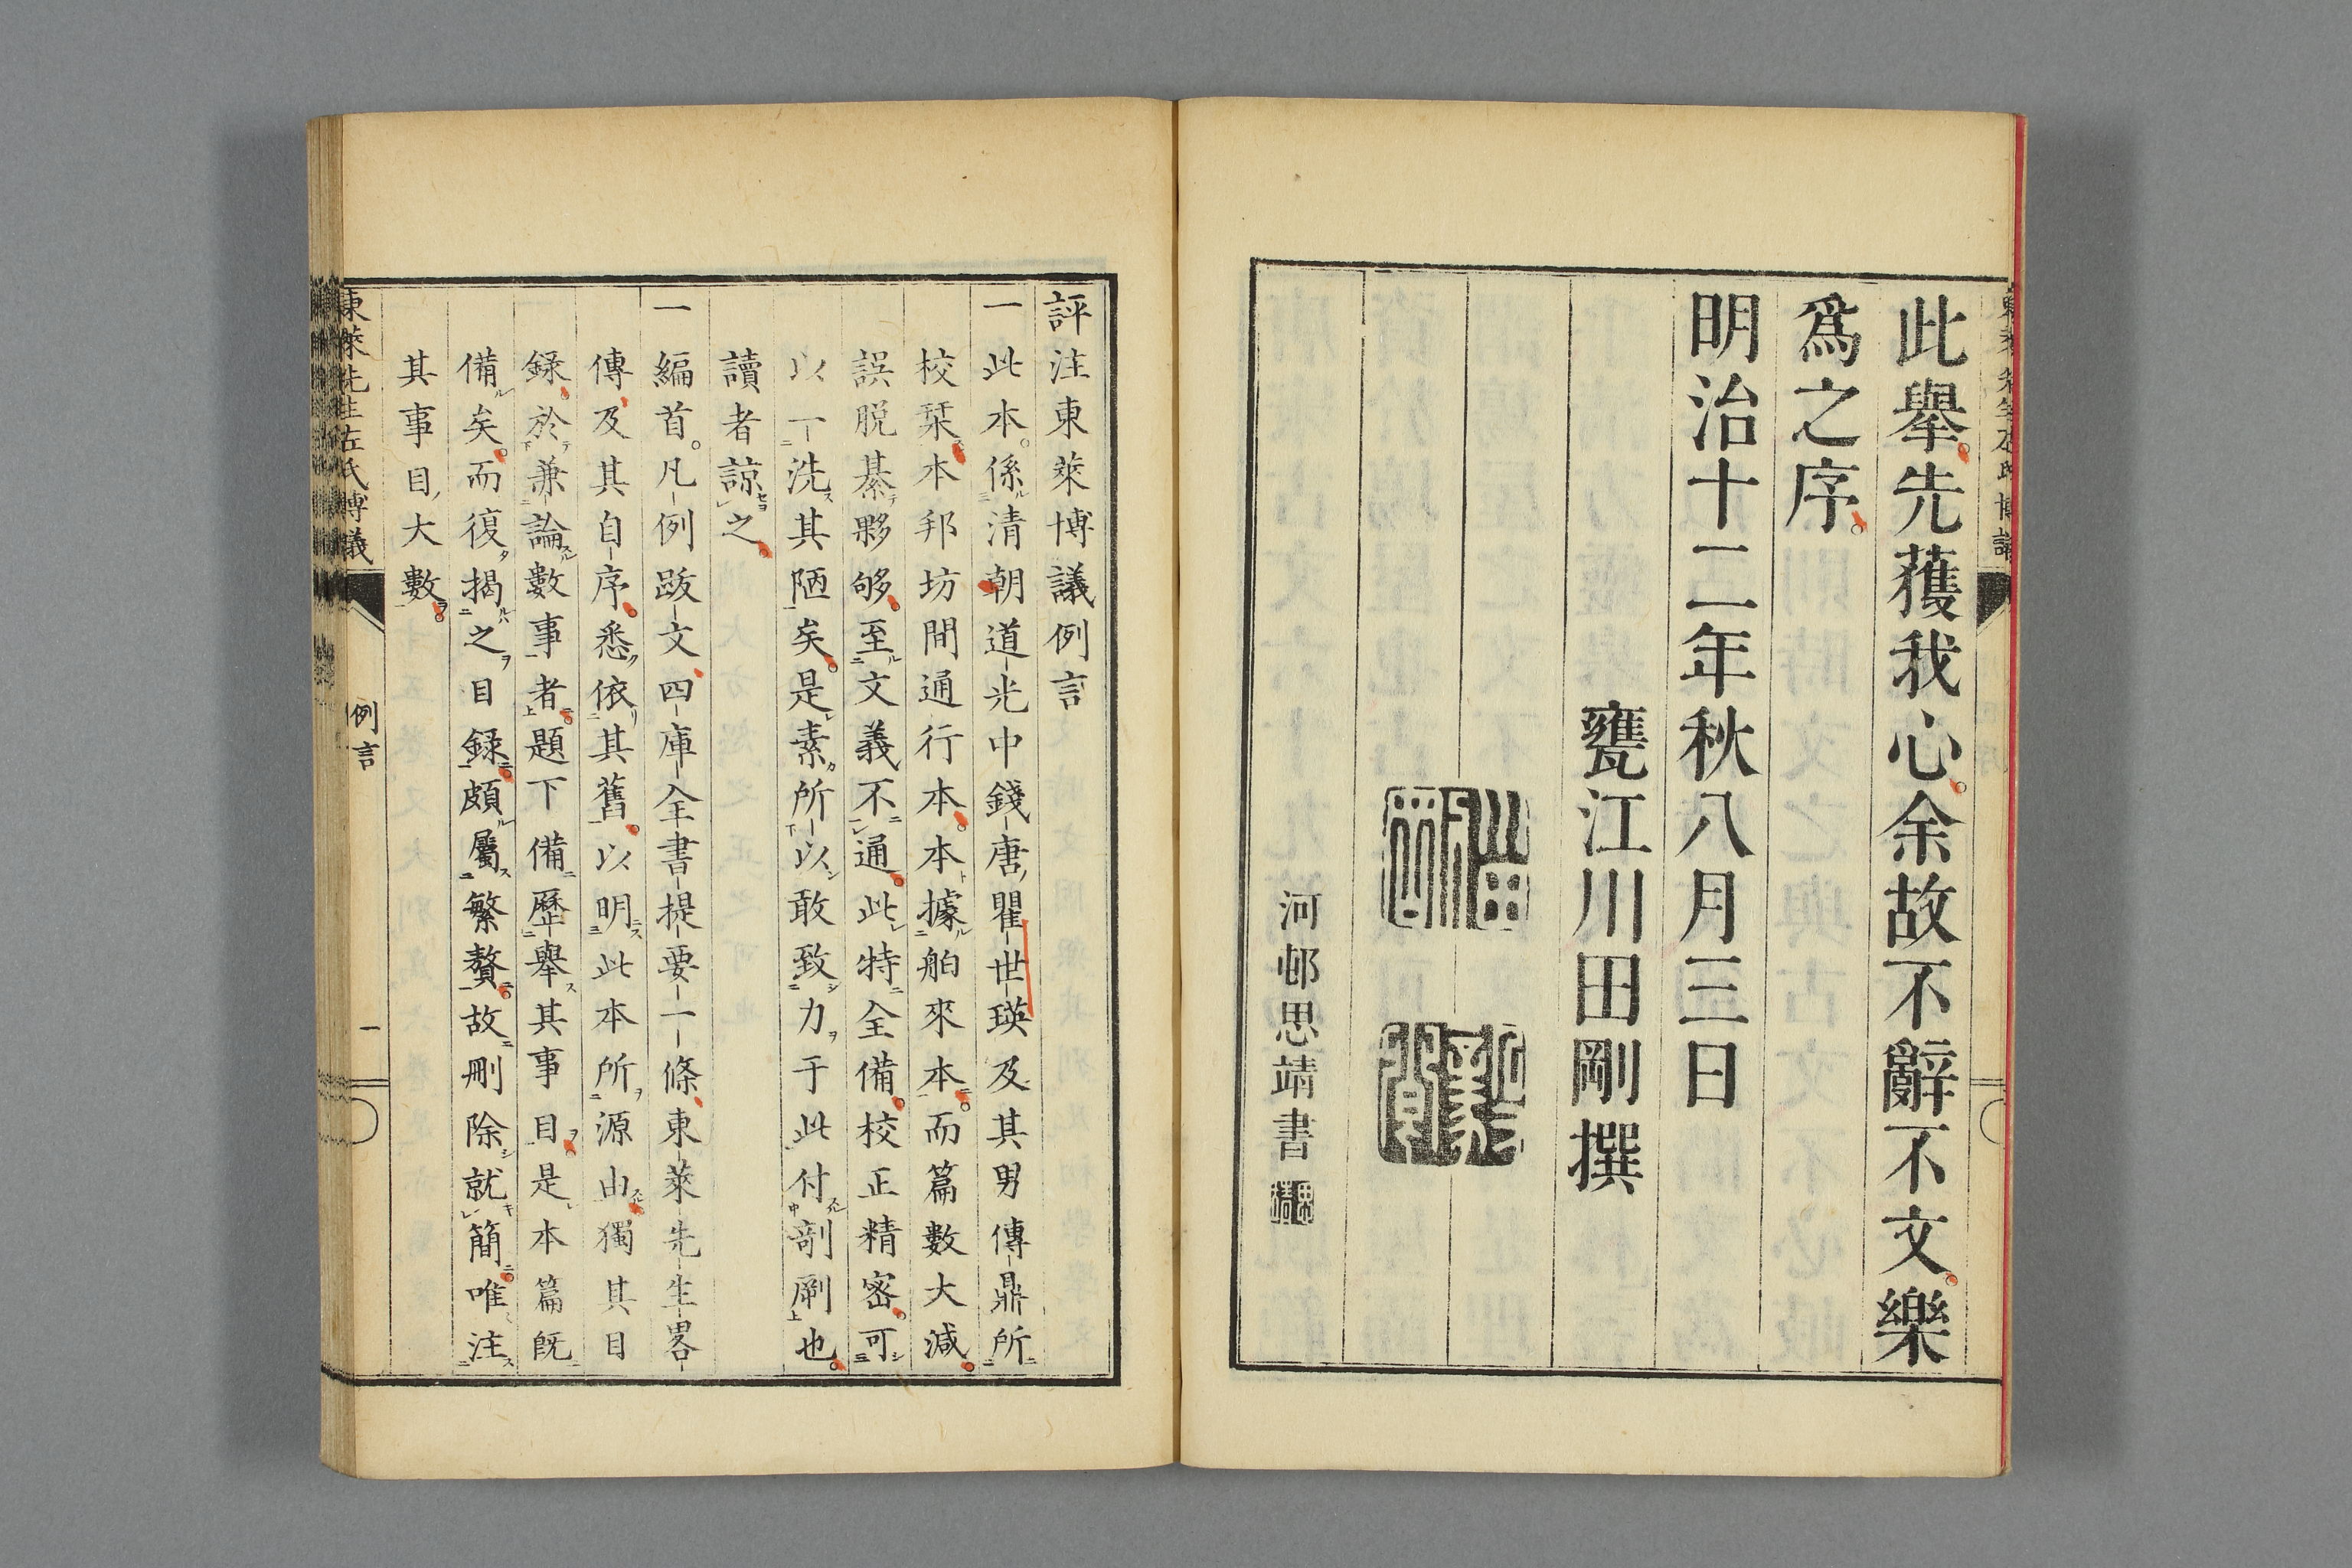 此舉先獲我心余故不辭不文樂
爲之序
明治十二年秋八月三日
甕江川田剛撰
河邨思靖書
評注東萊博議例言
一此本係清朝道光中錢唐瞿世瑛及其男傳鼎所
校栞本邦坊間通行本本據舶來本而篇數大減
誤脱綦夥够至文義不通此特全備校正精密可
以一洗其陋矣是素所以敢致力于此付剞劂也
讀者諒之
一編首凡例跋文四庫全書提要一條東萊先生畧
傳及其自序悉依其舊以明此本所源由獨其目
録於兼論數事者題下備歷舉其事目是本篇既
備矣而復揭之目録頗屬繁贅故刪除就簡唯注
其事目大數
東萊先生左氏博議
例言
一